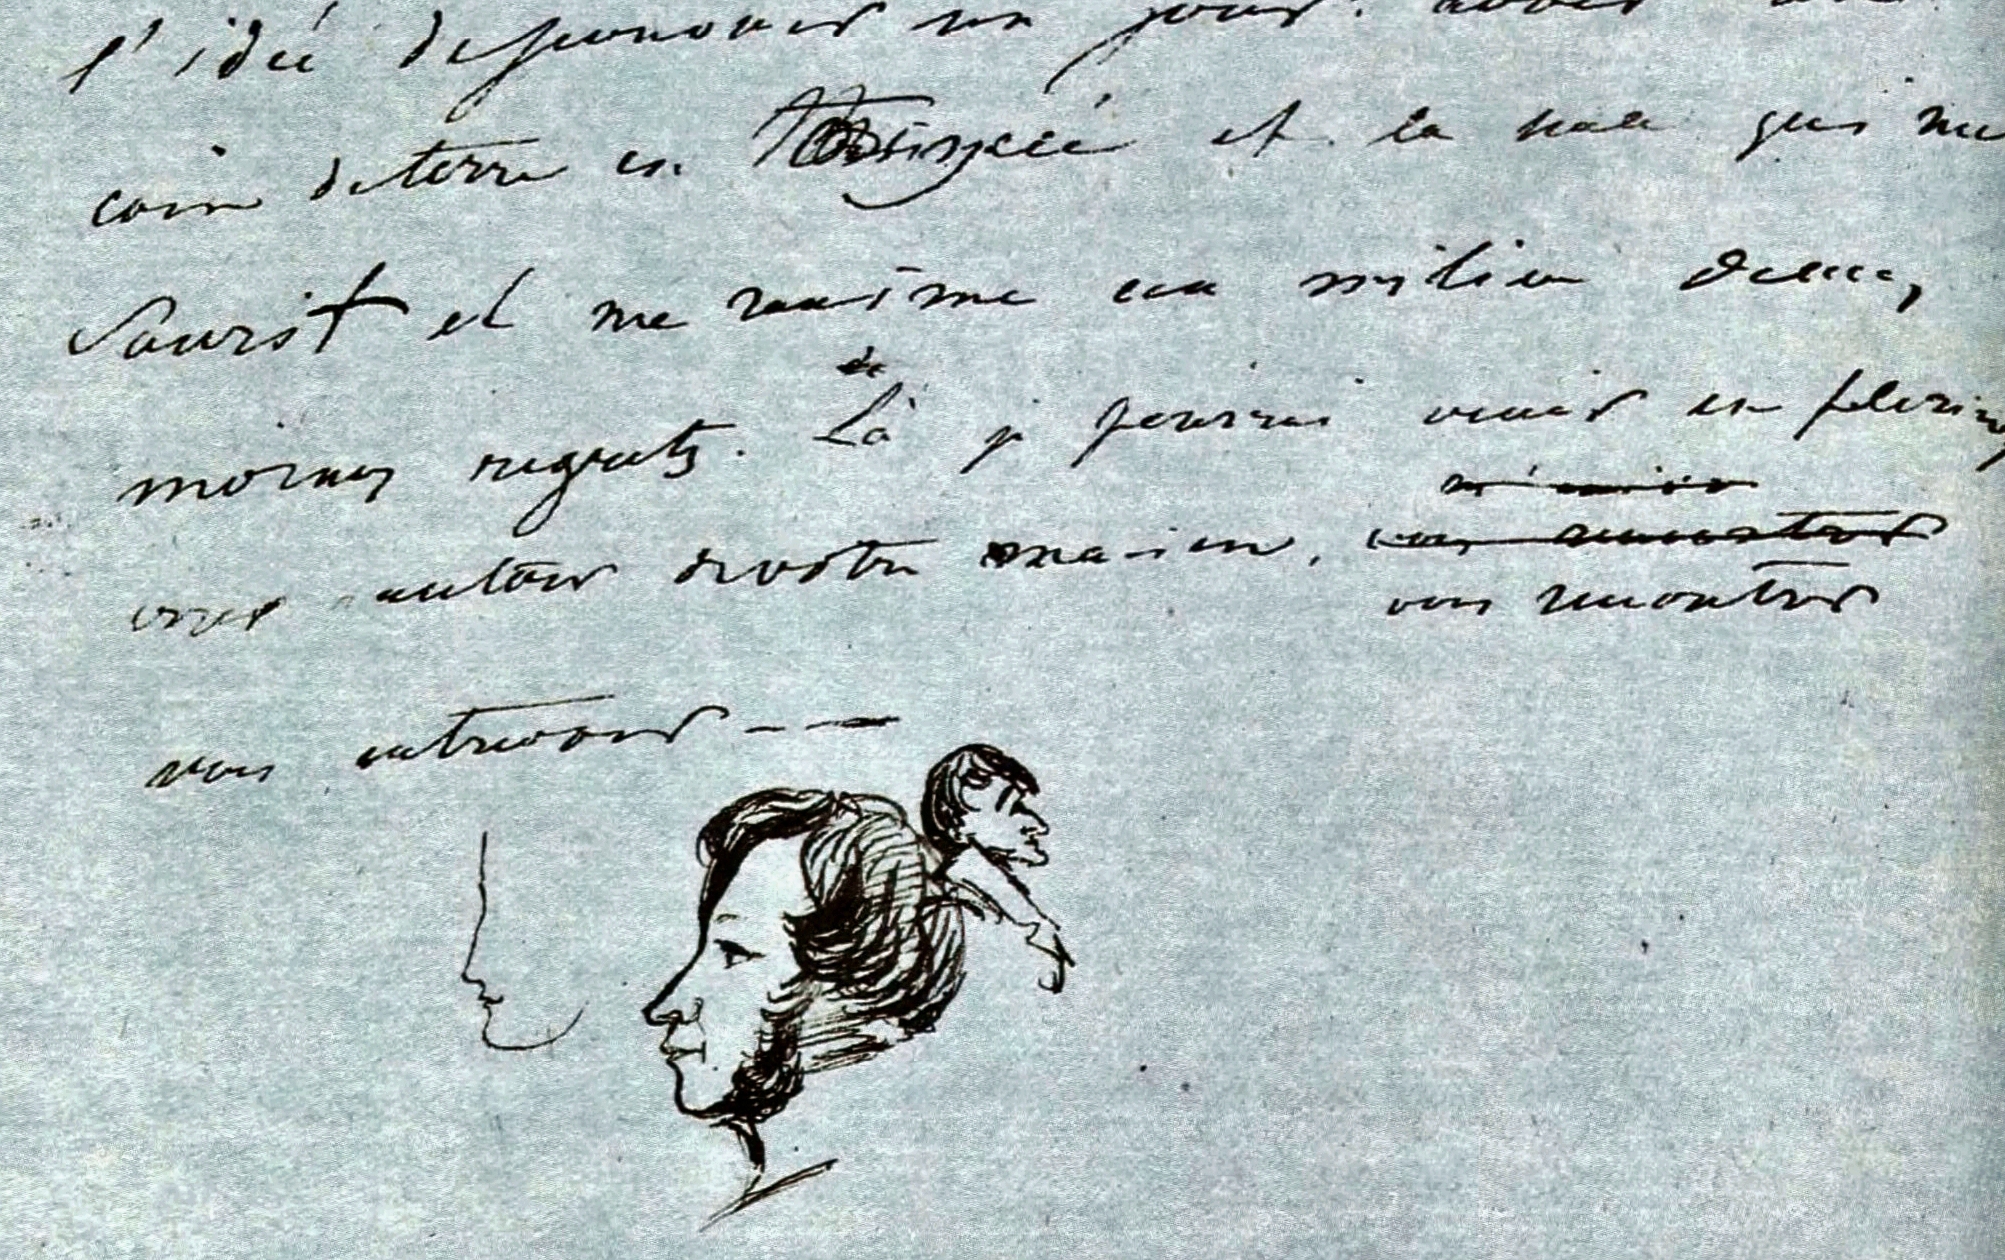 l'idée de un jour. avoir un
coin de terre en Crimée et la seule qui me
Sourit et me ranime au milieu de mes
mornes regrets. Là je pourrai venir en pelerinag
errer autour de votre maison, vous rencontrer
vous rencontrer
vous entrevoir - —